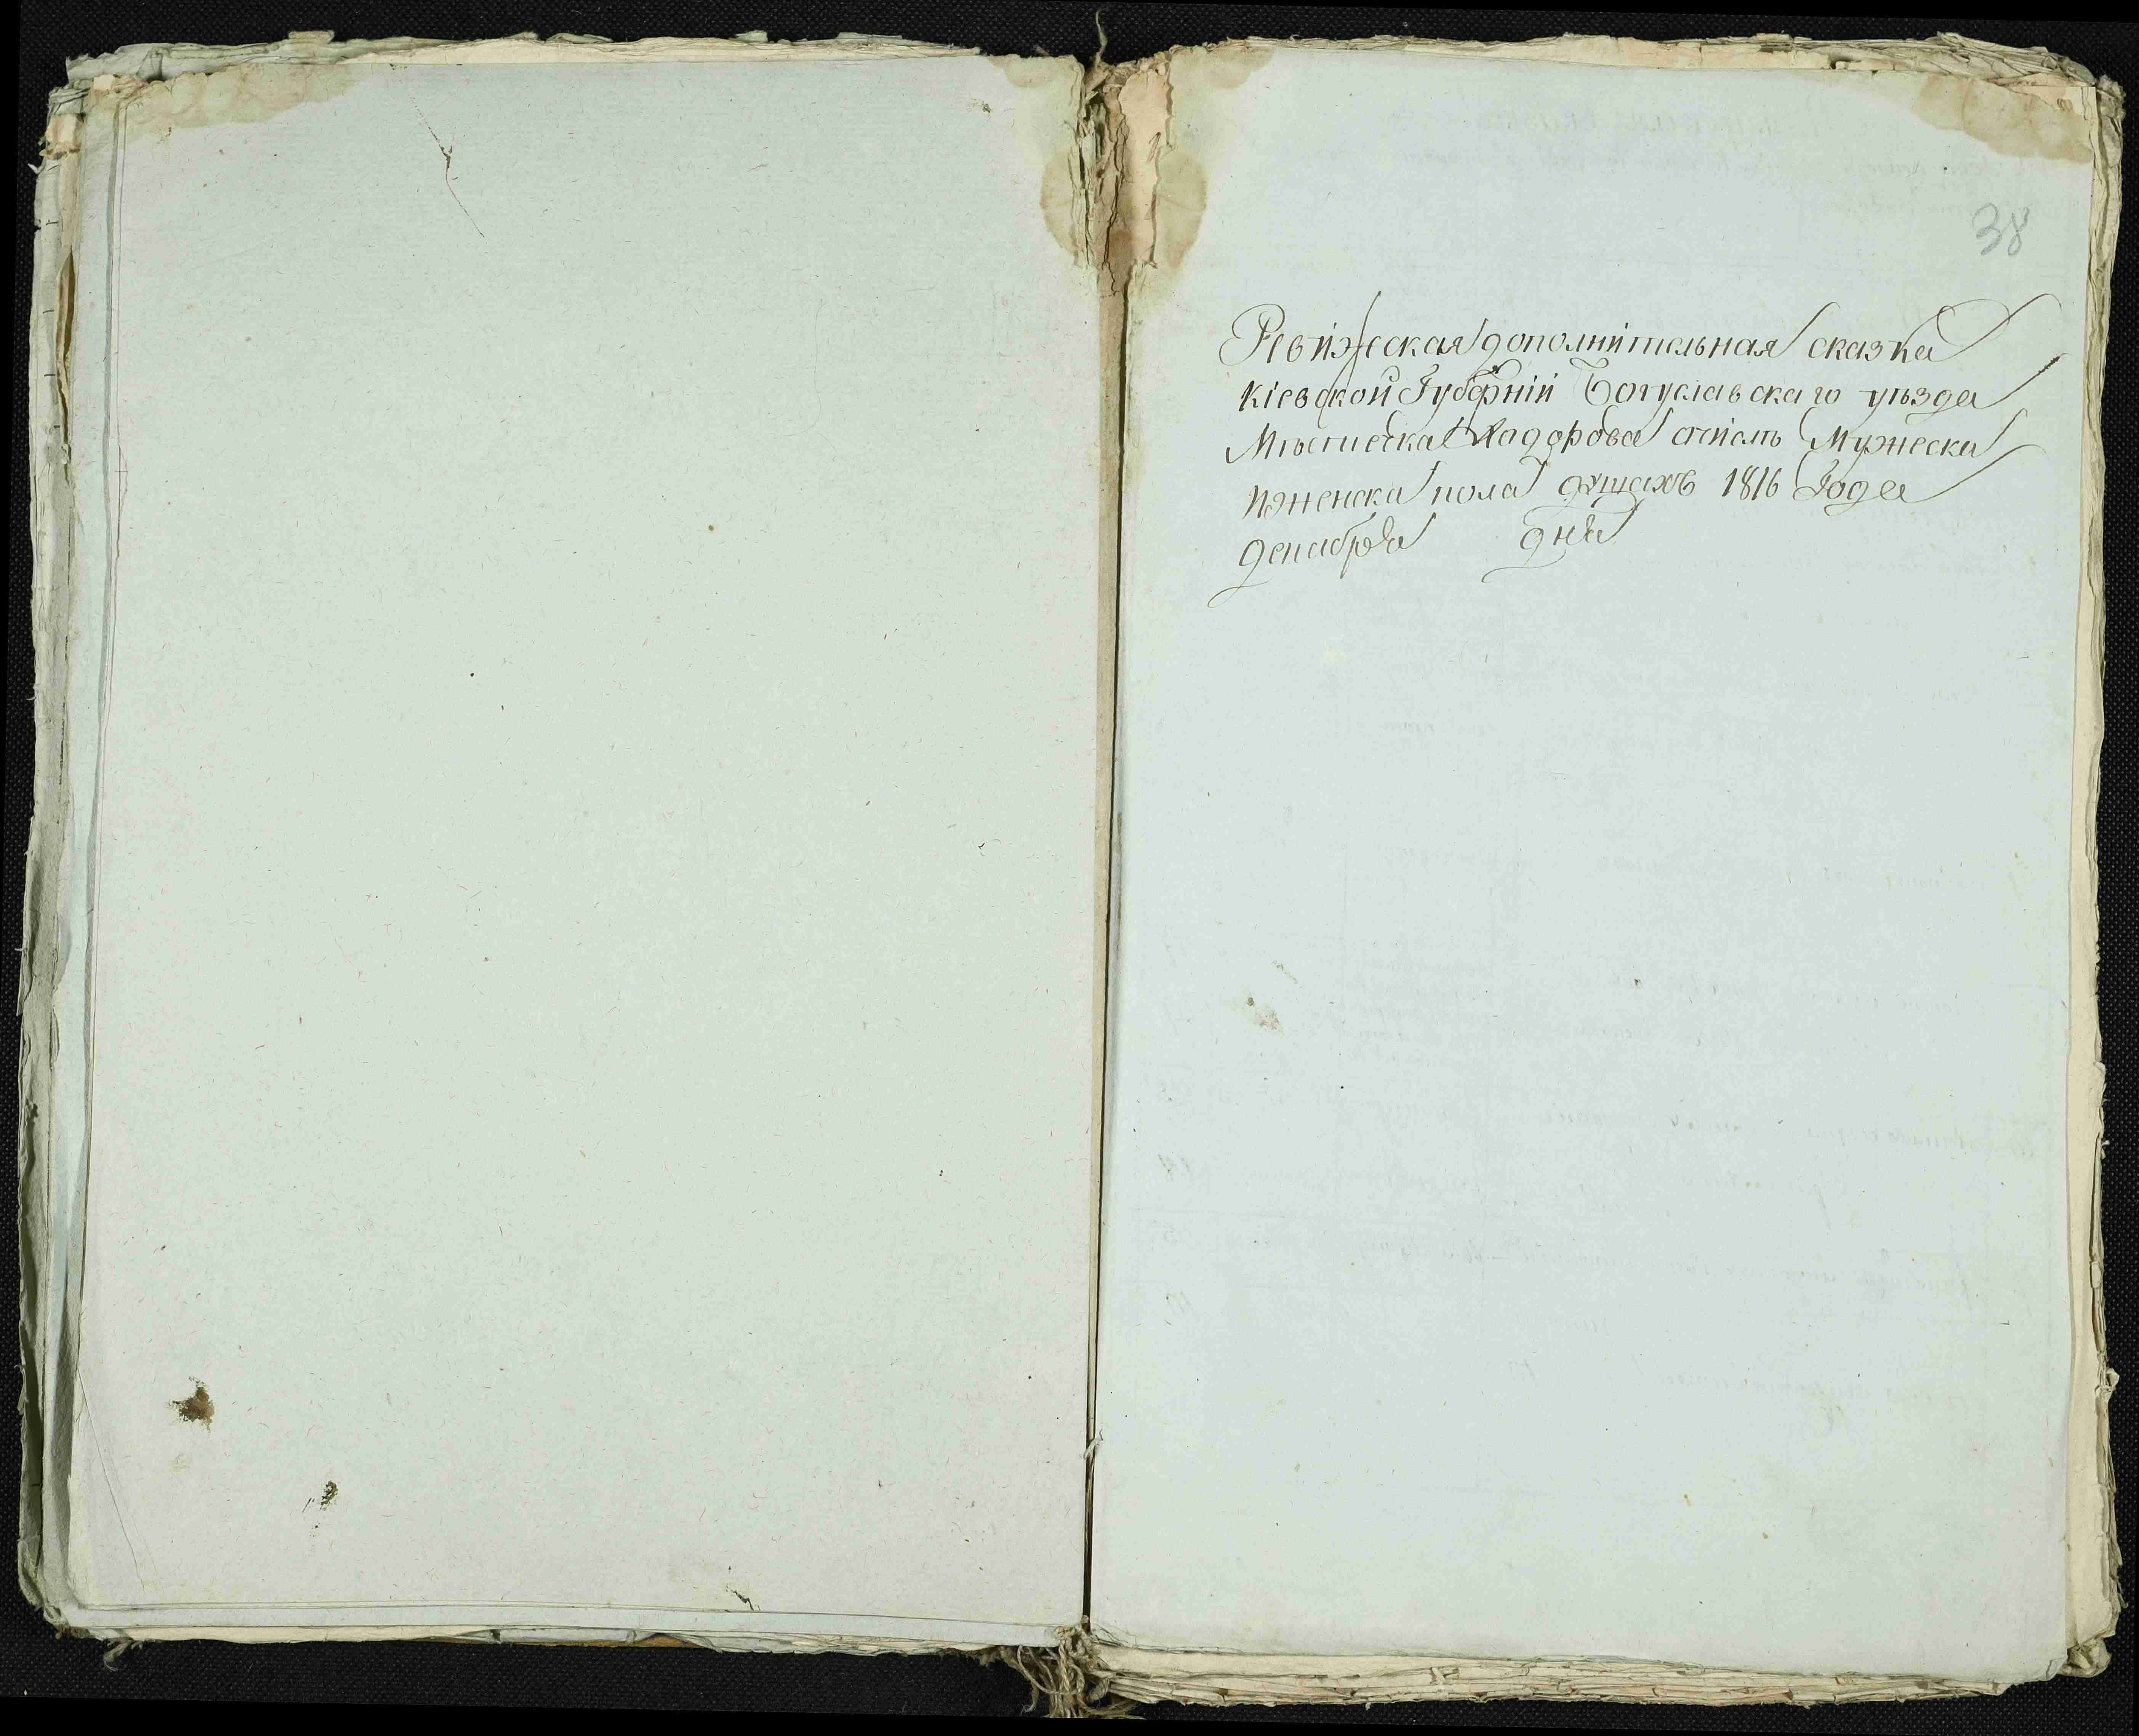 38
Ревизская дополнительная сказка
Кіевской Губерніи Богуславскаго уѣзда
Мѣстечка Кадорова
мужеска
и женска пола душахъ 1816 года
декабря дня